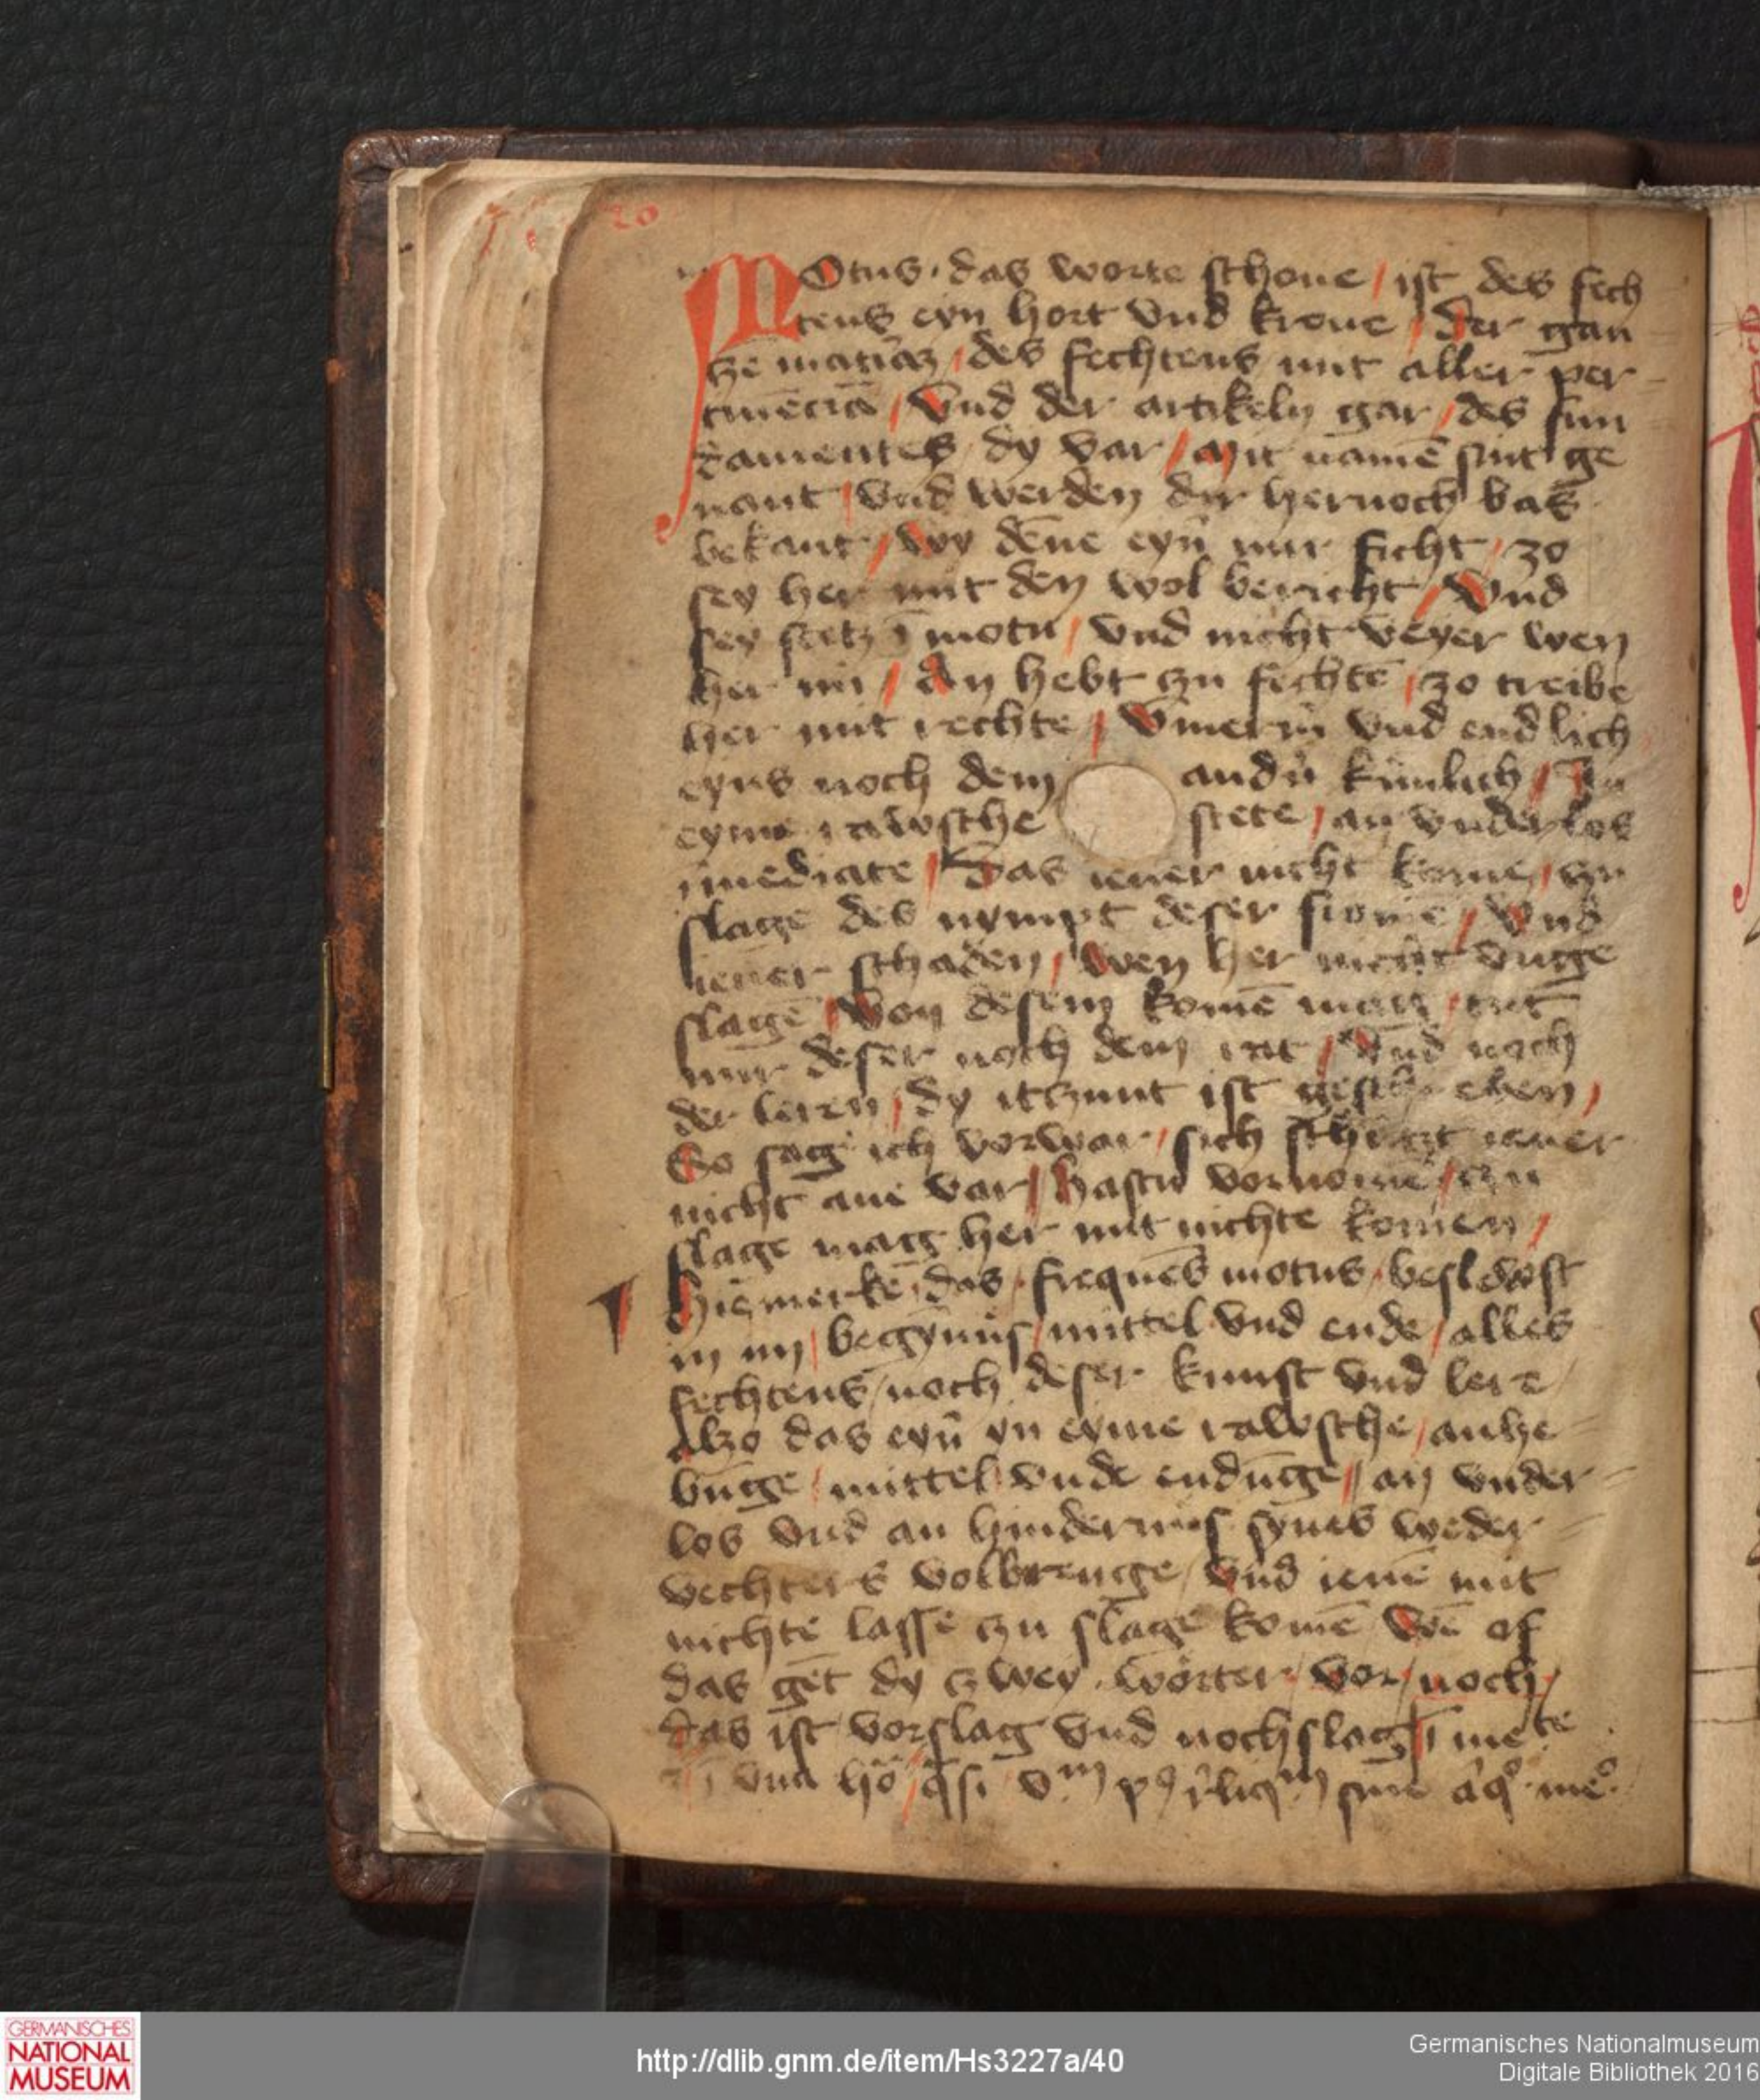 20
MOtus das worte schone / ist des fech
tens eyn hort vnd krone / Der gan
cze͞ mat͛iaz / des fechtens mit aller per
tine͞cia͞ / Vnd der artikeln gar / des fun
damentes dy var / Mit name͞ sint ge
nant / vnd werden dir hernoch bas
bekant / Wy de͞ne eyn͛ nur ficht / zo
sey her mit den wol bericht / Vnd
sey stetz i͞ motu / vnd nicht veyer wen
her nu / An hebt czu fechte͞ / zo treibe
her mit rechte / V͞mermͤ vnd endlich
eyns noch dem andn͛ ku͞nlich / In
eyme rawsche stete / an vnderlos
i͞mediate / Das iener nicht kome / czu
slage des nympt deser frome͞ / Vnd
iener schaden / wen her nicht vnge
slage͞ / Von desem kome͞ mag / tut
nur deser noch dem rat / Vnd noch
der leren / dy itzunt ist geschreben /
So sag ich vorwar / sich schützt iener
nicht ane var / Hastu vornome͞ / czu
slage mag her mit nichte komen /
Hie͞ merke / das / freque͞s motus / beslewst
in im / begy͞nüs / mittel vnd ende / alles
fechtens / noch deser kunst vnd lere
Alzo das eyn͛ yn eyme rawsche / anhe
bu͞ge / mittel vnde endu͞ge / an vnder
los vnd an hindernis synes weder
vechters volbrenge / Vnd iene͞ mit
nichte lasse czu slage kome͞ We͞ of
das get dy czwey wörter / vor / noch /
das ist vorslag vnd nochslag / i͞ me te
i͞ vna ho͛ / q͞si vm p9 rͥliqm sine aͥqͦ meͦ
GERMANISCHES
NATIONAL
MUSEUM
http://dlib.gnm.de/item/Hs3227a/40
Germanisches Nationalmuseum
Digitale Bibliothek 2016